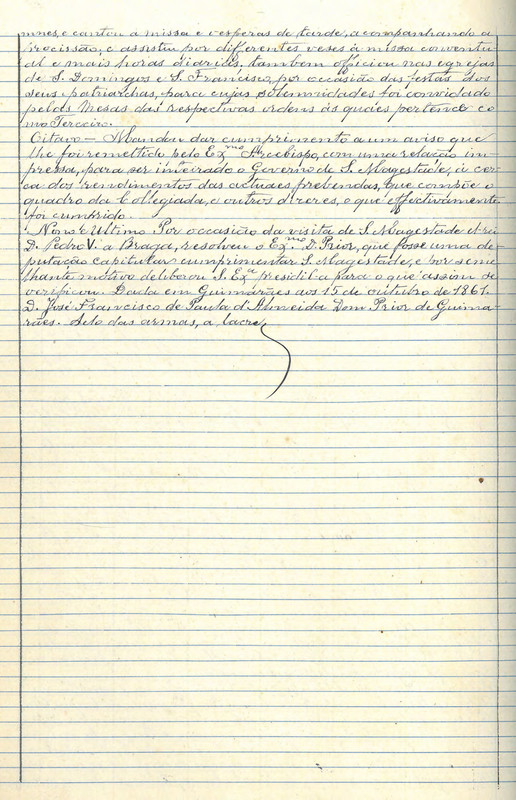 mnes, e cantou a missa e vesperas de tarde, acompanhando a
procissão, e assistiu por differentes veses à missa conventu-
al e mais horas diarias, tambem officiou nas egrejas
de S. Domingos e S. Francisco, por occasião das festas dos
seus patriarchas, para cujas solemnidades foi convidado
pelas Mesas das respectivas ordens ás quaes pertence co-
mo Terceiro.
Oitavo — Mandou dar cumprimento a um aviso que
lhe foi remettido pelo Exmo Arcebispo, com uma relação im-
pressa, para ser inteirado o Governo de S. Magestade, á cer-
ca dos rendimentos das actuaes prebendas, que compõe o
quadro da Collegiada, e outros dizeres, o que effectivamente
foi cumprido.
Nono e Ultimo Por occasião da visita de S. Magestade el-rei
D. Pedro V. a Braga, resolveu o Exmo D. Prior, que fosse uma de-
putação capitular cumprimentar S. Magestade, e por seme-
lhante motivo deliberou S. Exa presidil-a para o que assim se
verificou. Dada em Guimarães aos 15 de outubro de 1861.
D. José Francisco de Paula d'Almeida Dom Prior de Guima-
rães. Selo das armas, a lacre